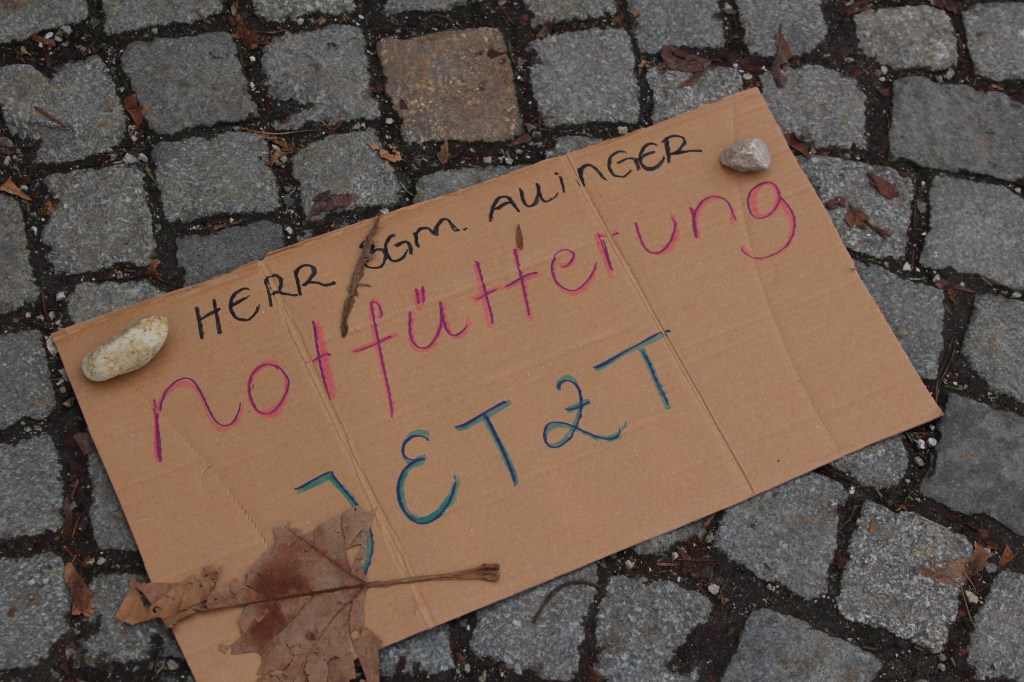 HERR BGM. AllinGER
Notfütterung
JETZT